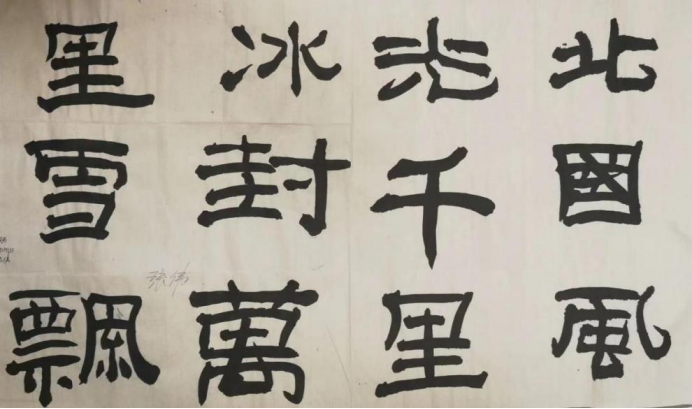 北國風
光千里
冰封萬
里雪飄
张伟